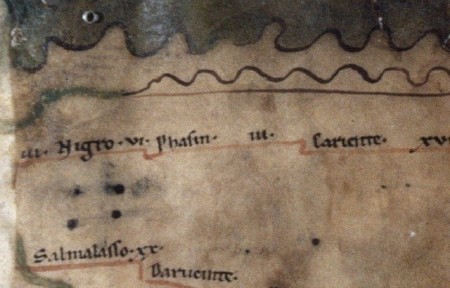 III. Nigro. VI. Phasin. III. Cariente. XVI
Salmalasso. XX.
Daruente.